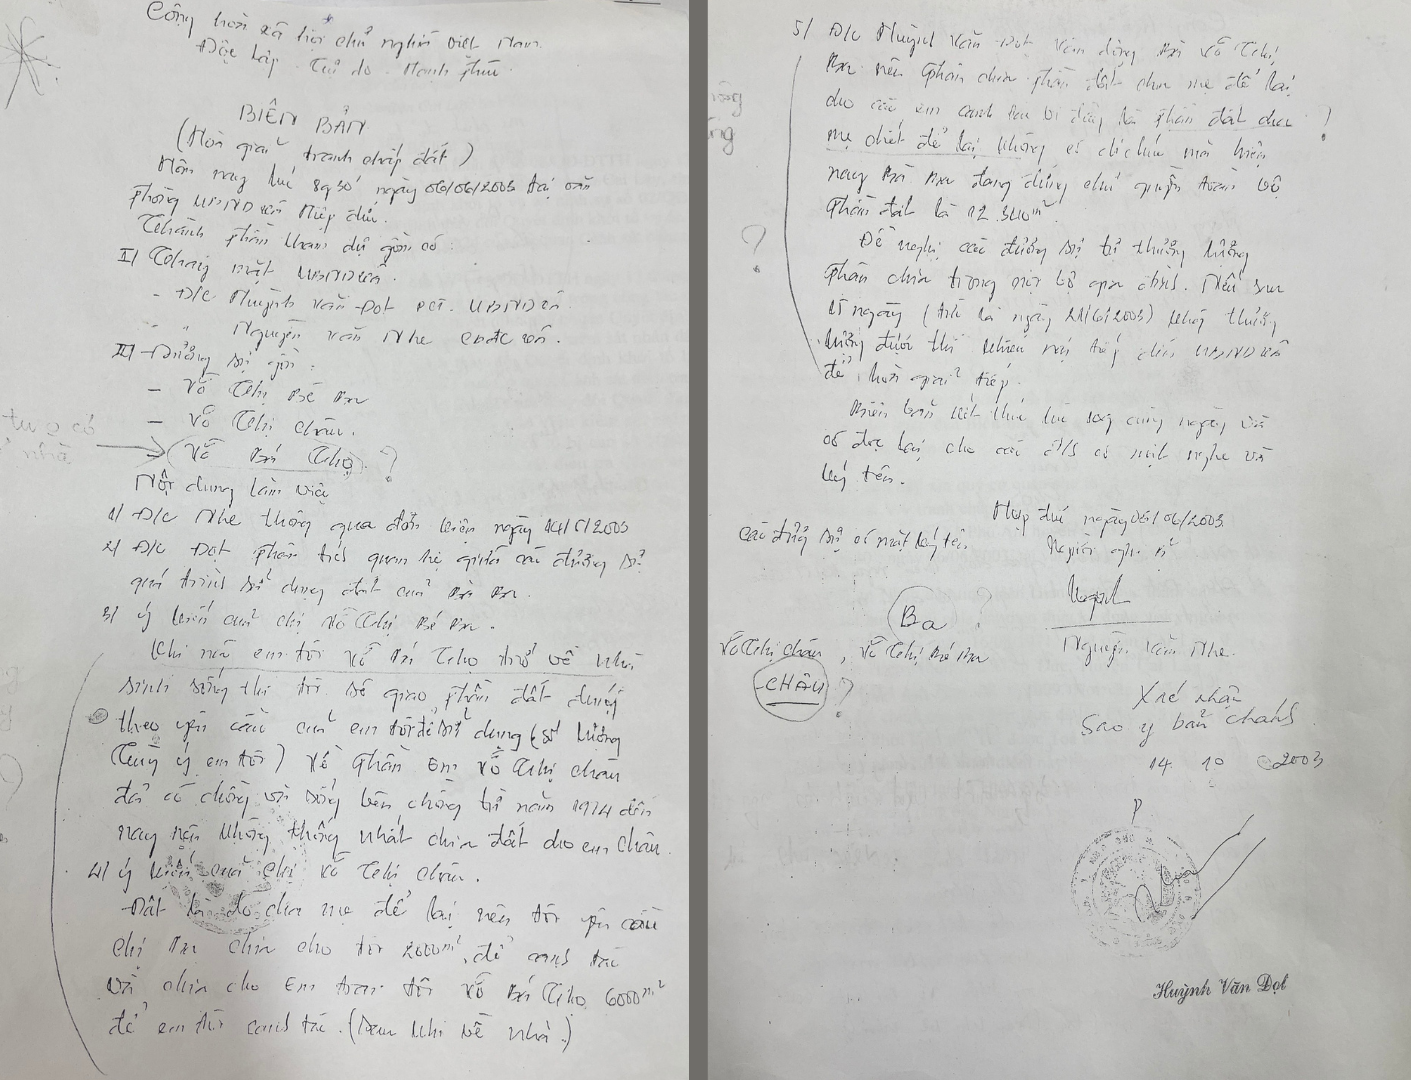 Cộng hoà xã hội chủ nghĩa Việt Nam.
Độc lập - Tự do - Hạnh phúc.
BIÊN BẢN
(Hòa giải tranh chấp đất)
Hôm nay lúc 8g30' ngày 06/06/2003 tại văn
phòng UBND xã Hiệp đức.
Thành phần tham dự gồm có:
I/ Thay mặt UBND xã.
- Đ/c Huỳnh văn Đạt PCT. UBND xã.
" " Nguyễn văn Nhe CBĐC xã.
II/ Đương sự gồm:
- Võ Thị Bé Ba
- Võ Thị Châu.
- Võ Bá Thọ ?
Nội dung làm việc
1/ Đ/c Nhe thông qua đơn kiện ngày 14/5/2003
2/ Đ/c Đạt phân tích quan hệ giữa các đương sự
quá trình sử dụng đất của Bà Ba.
3/ ý kiến của chị Võ Thị Bé Ba.
Khi nào em tôi Võ Bá Thọ trở về nhà
sinh sống thì tôi sẽ giao phần đất
theo yêu cầu của em tôi để sử dụng (số lượng
tùy ý em tôi) về phần em Võ Thị Châu
đã có chồng và sống bên chồng từ năm 1974 đến
nay nên không thống nhất chia đất cho em Châu.
4/ ý kiến của chị Võ Thị Châu.
Đất là do cha mẹ để lại nên tôi yêu cầu
chị Ba chia cho tôi 2000m², để canh tác
và chia cho em trai tôi Võ Bá Thọ 6000m²
để em tôi canh tác. (Sau khi về nhà.)
5/ Đ/c Huỳnh văn Đạt vận động Bà Võ Thị
Ba nên phân chia phần đất cha mẹ để lại
cho các em canh tác vì đây là phần đất cha ?
mẹ chết để lại không có di chúc mà hiện
nay Bà Ba đang đứng chủ quyền toàn bộ
phần đất là 12.340m².
?
Đề nghị các đương sự tự thương lượng
phân chia trong nội bộ gia đình. Nếu sau
15 ngày (tức là ngày 21/6/2003) không thương
lượng được thì khiếu nại tiếp đến UBND xã
để hòa giải tiếp.
Biên bản kết thúc lúc cùng ngày và
có đọc lại cho các Đ/S có mặt nghe và
ký tên.
Hiệp đức ngày 06/06/2003
Các đương sự có mặt ký tên
Người ghi
Ba ?
Võ Thị Châu, Võ Thị Bé Ba
Nguyễn Văn Nhe.
CHÂU ?
Xác nhận
Sao y bản chánh
14 10 2003
Huỳnh Văn Đạt